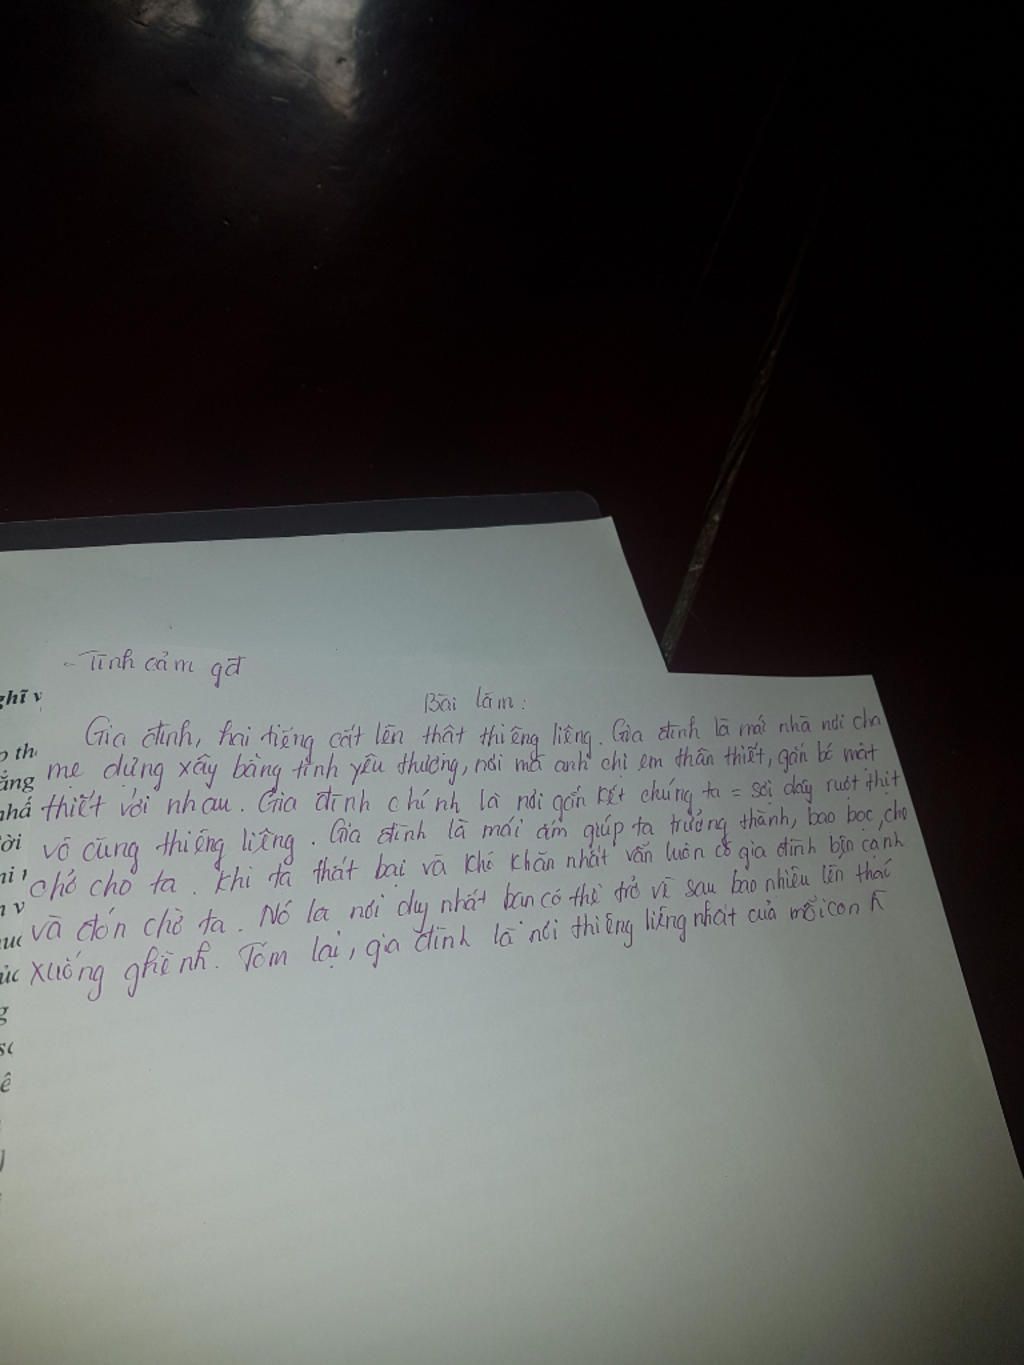 - Tình cảm gđ
Bài làm:
Gia đình, hai tiếng cất lên thật thiêng liêng. Gia đình là mái nhà nơi cha
mẹ dựng xây bằng tình yêu thương, nơi mà anh chị em thân thiết, gắn bó mật
thiết với nhau. Gia đình chính là nơi gắn kết chúng ta = sợi dây ruột thịt
vô cùng thiêng liêng. Gia đình là mái ấm giúp ta trưởng thành, bao bọc, che
chở cho ta. Khi ta thất bại và khó khăn nhất vẫn luôn có gia đình bên cạnh
và đón chờ ta. Nó là nơi duy nhất bạn có thể trở về sau bao nhiêu lên thác
xuống ghềnh. Tóm lại, gia đình là nơi thiêng liêng nhất của mỗi con
ghĩ v